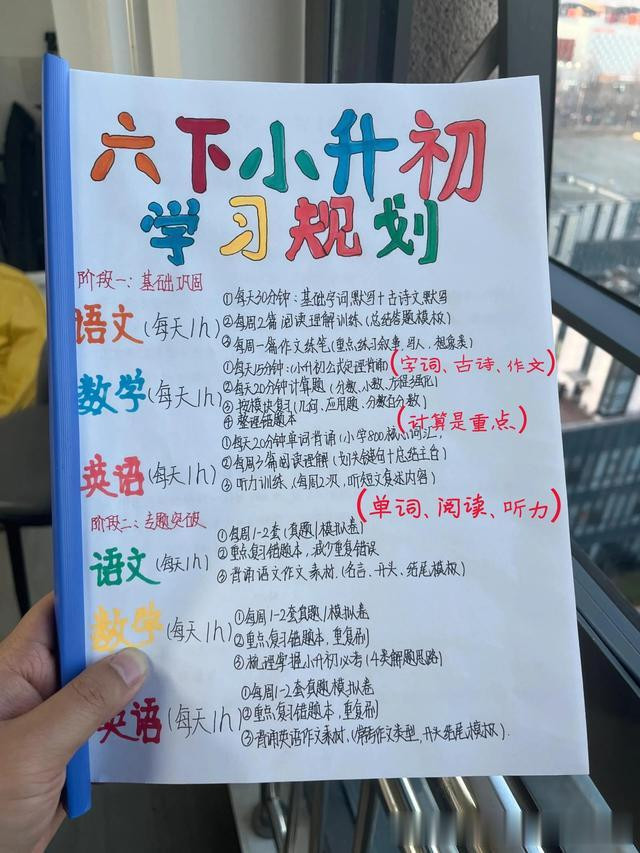 六下小升初
学习规划
阶段一：基础巩固
语文(每天1h)
①每天30分钟：基础字词默写+古诗文默写
②每周2篇阅读理解训练(总结答题模板)
③每周一篇作文练笔(重点练习叙事、写人、想象类)
(字词、古诗、作文)
数学(每天1h)
①每天15分钟：小升初公式定理背诵
②每天20分钟计算题(分数、小数、方程强化)
③按模块复习(几何、应用题、分数百分数)
④整理错题本
(计算是重点)
英语(每天1h)
①每天20分钟单词背诵(小学800核心词汇,
②每周3篇阅读理解(划关键句+总结主旨)
③听力训练(每周2次,听短文复述内容)
(单词、阅读、听力)
阶段二：专题突破
语文(每天1h)
①每周1-2套(真题/模拟卷
②重点复习错题本,减少重复错误
③背诵语文作文素材、(名言、开头、结尾模板)
数学(每天1h)
①每周1-2套真题/模拟卷
②重点复习错题本、重复刷
③梳理掌握小升初必考(4类解题思路)
英语(每天1h)
①每周1-2套真题模拟卷
②重点复习错题本,重复刷
③背诵英语作文素材、(常考作文类型,开头结尾模板).